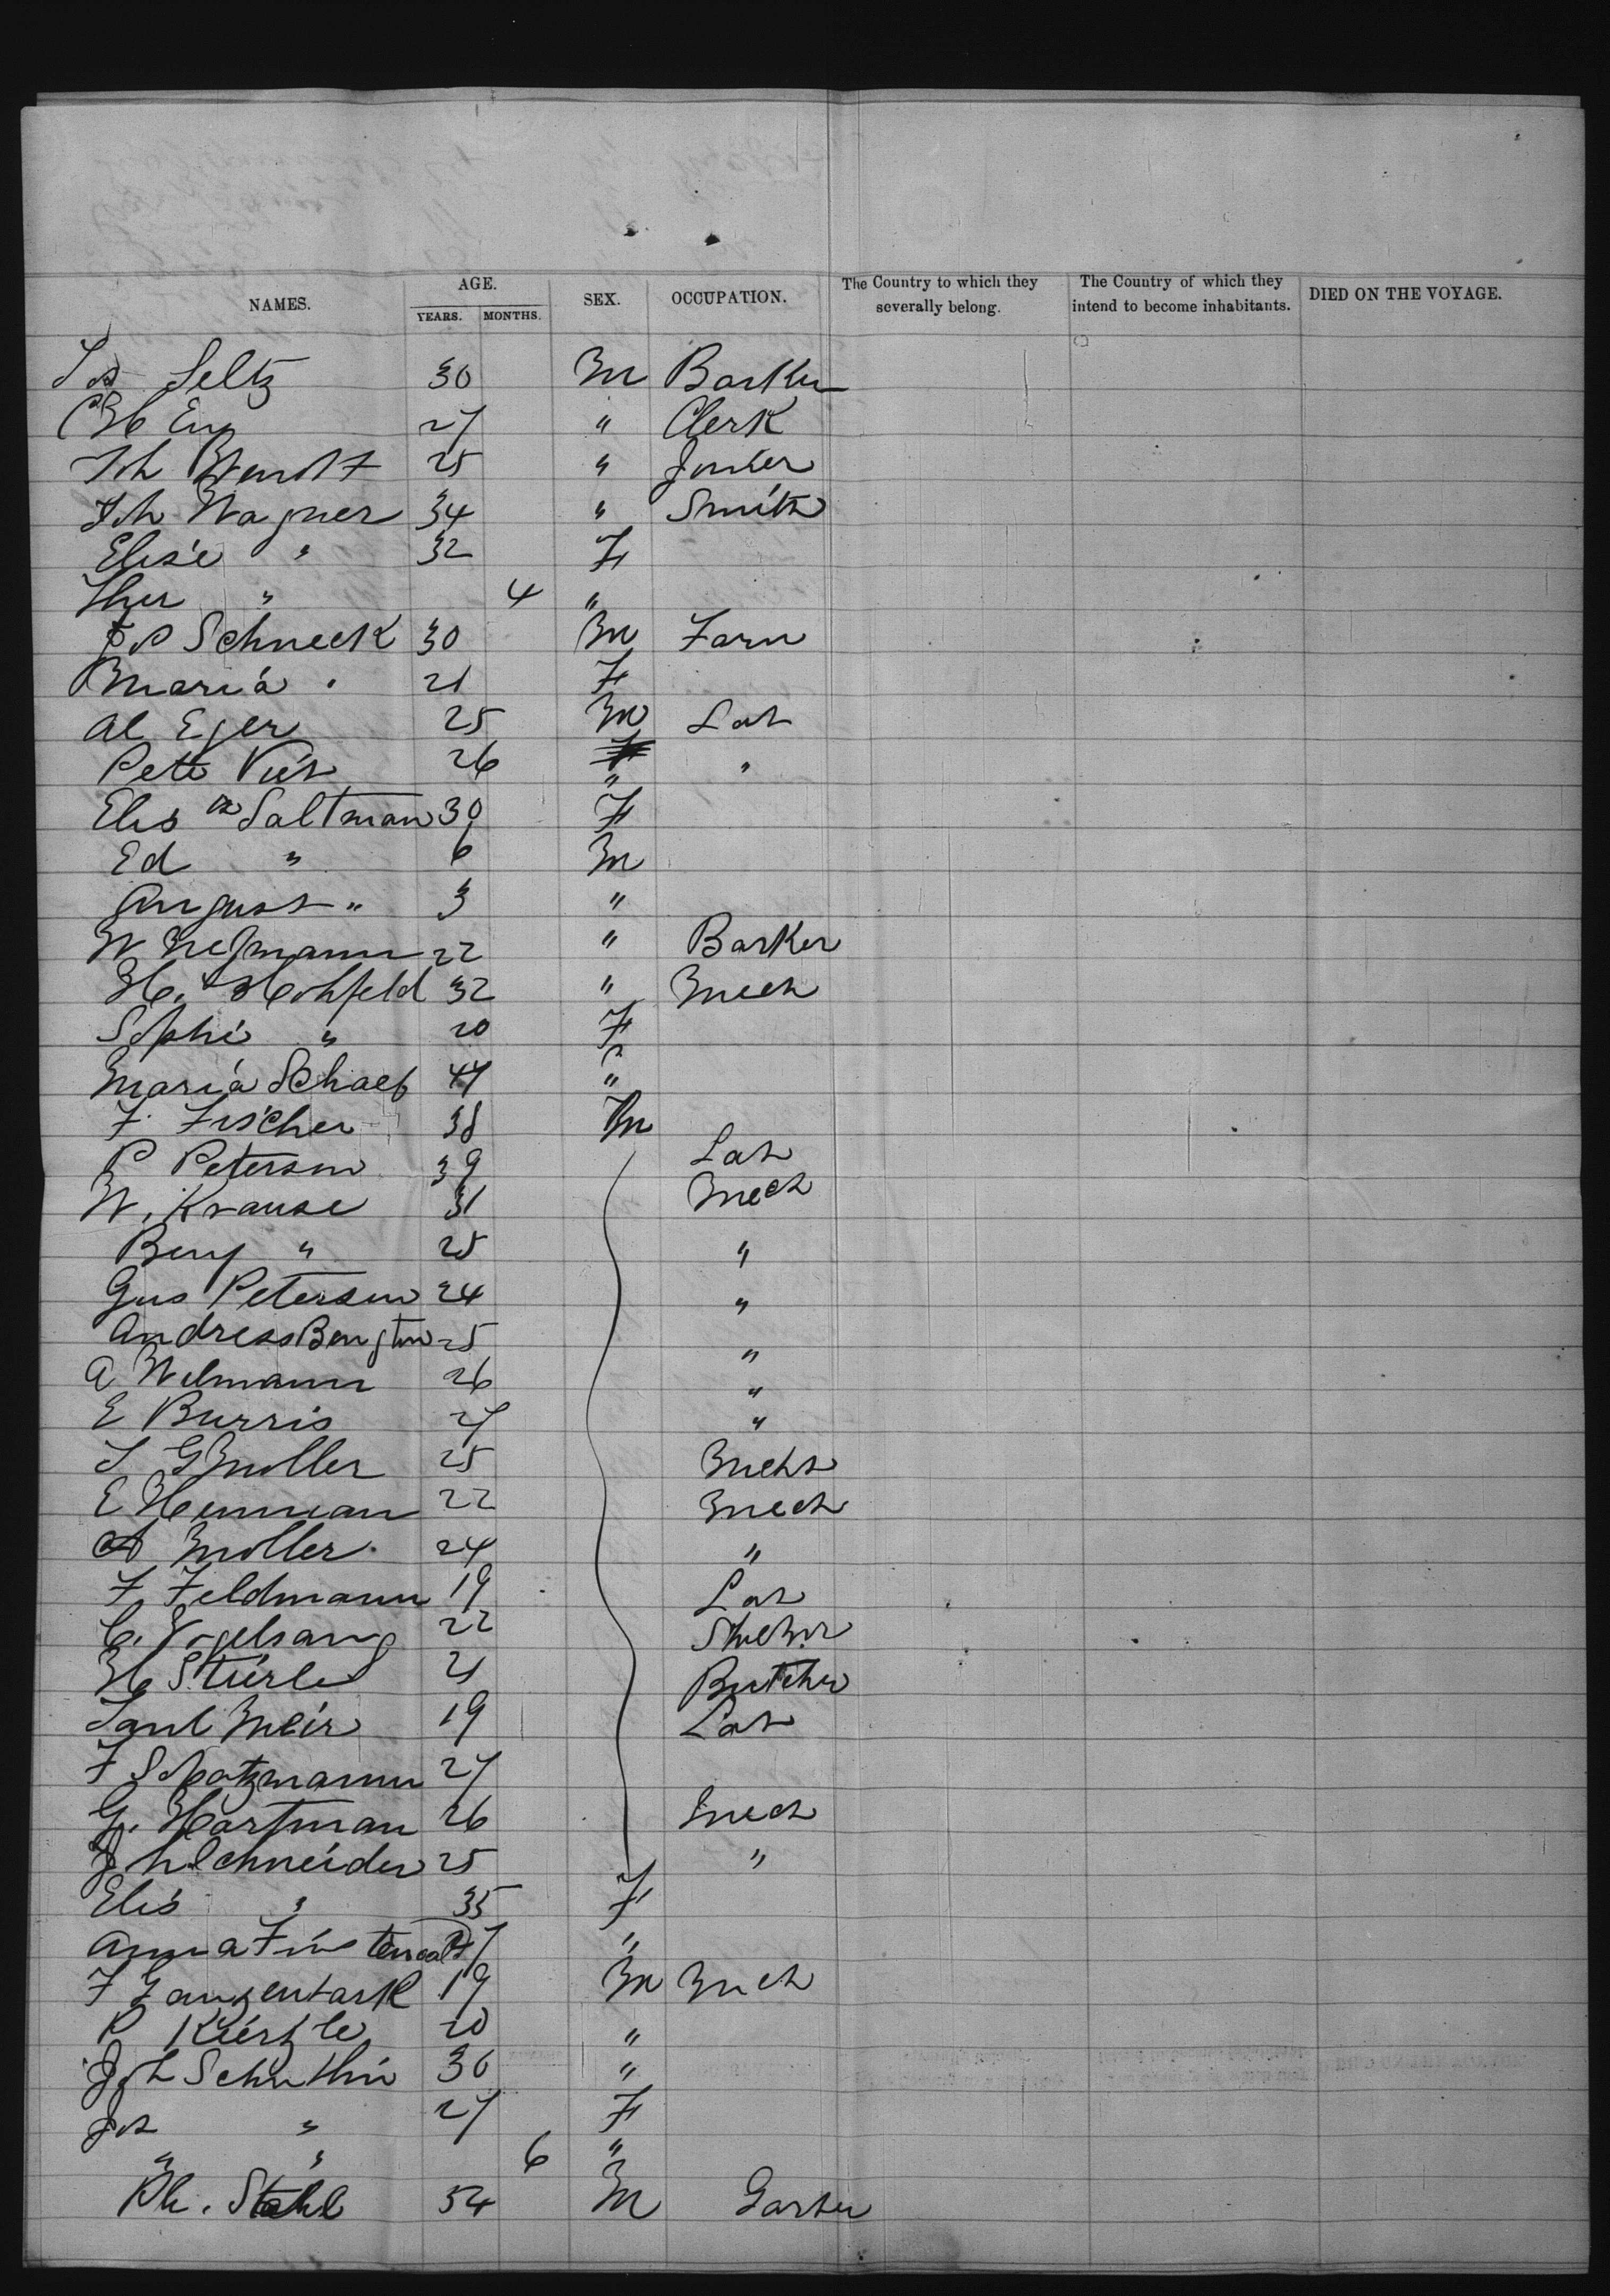 NAMES. AGE. YEARS. MONTHS. SEX. OCCUPATION. The Country to which they severally belong. The Country of which they intend to become inhabitants. DIED ON THE VOYAGE.
Jos Seltz 30 M Barker
27 " Clerk
Joh Wendt 25 "
Joh Wagner 34 " Smith
Elise " 32 F
Ther " 4 "
Jos Schneck 30 M Farm
Maria " 21 F
Al Eger 25 M Lab
Pete 26 " "
Elis Saltman 30 F
Ed " 6 M
August " 3 "
W 22 " Barker
H. Hohfeld 32 " Mech
Sophi " 20 F
Maria Schaef 47 "
F. Fischer 38 M
P Peterson 39 Lab
W. Krause 31 Mech
Benj " 25 "
Gus Peterson 24 "
Andress Bengton 25 "
A Wilmann 26 "
E Burris 27 "
J G Moller 25
E Henman 22 Mech
A Moller 24 "
F Feldmann 19 Lab
C. Vogelsang 22
H Stierle 21 Butcher
Paul Meir 19 Lab
F Schatzmann 27
G. Hartman 26 Mech
Joh Schneider 25 "
Elis " 35 F
Anna Finsterwald 27 "
F 19 M Mech
R 20 "
Joh 30 "
Jos " 27 F
" " 6 "
Ph. Stahl 54 M